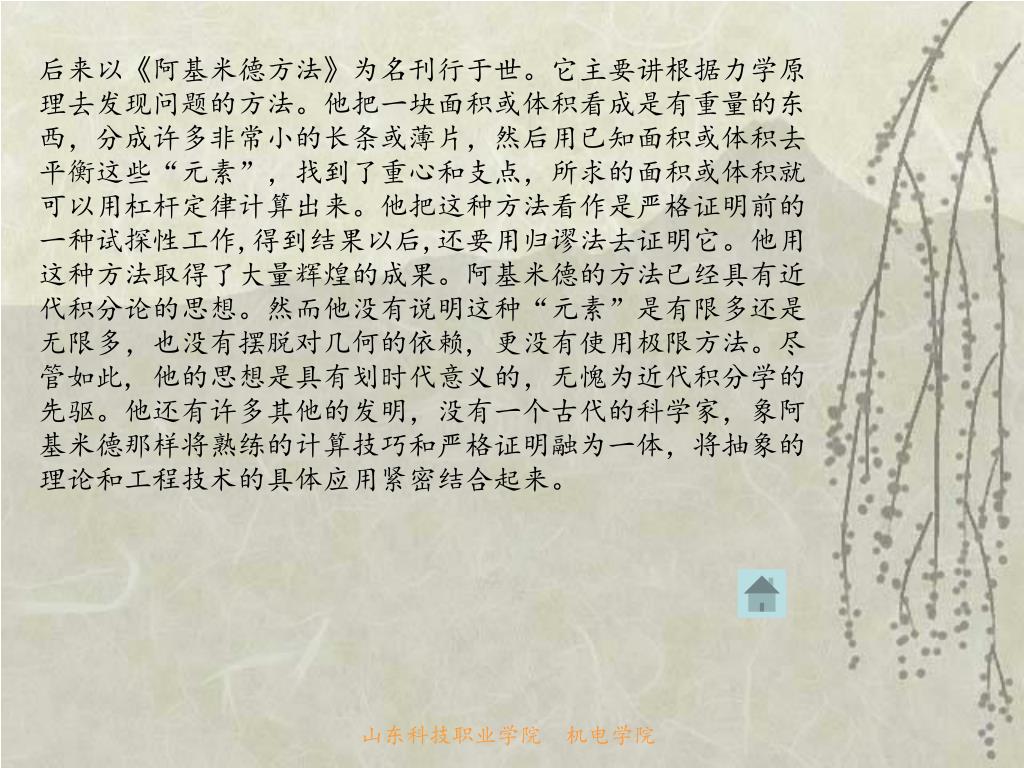 后来以《阿基米德方法》为名刊行于世。它主要讲根据力学原
理去发现问题的方法。他把一块面积或体积看成是有重量的东
西，分成许多非常小的长条或薄片，然后用已知面积或体积去
平衡这些“元素”，找到了重心和支点，所求的面积或体积就
可以用杠杆定律计算出来。他把这种方法看作是严格证明前的
一种试探性工作,得到结果以后,还要用归谬法去证明它。他用
这种方法取得了大量辉煌的成果。阿基米德的方法已经具有近
代积分论的思想。然而他没有说明这种“元素”是有限多还是
无限多，也没有摆脱对几何的依赖，更没有使用极限方法。尽
管如此，他的思想是具有划时代意义的，无愧为近代积分学的
先驱。他还有许多其他的发明，没有一个古代的科学家，象阿
基米德那样将熟练的计算技巧和严格证明融为一体，将抽象的
理论和工程技术的具体应用紧密结合起来。
山东科技职业学院　机电学院